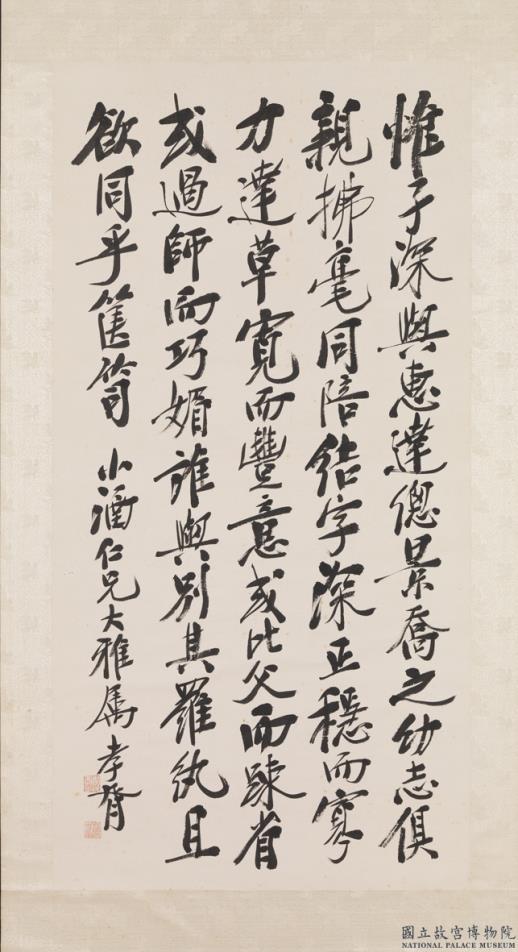 惟子深與惠達總景喬之幼志俱
親拂毫同陪結字深正穩而寡
力達草寬而豐意或比父而疎省
或過師而巧媚誰與別其羅紈且
欲同乎篋笥 小酒仁兄大雅属 孝胥
國立故宮博物院
NATIONAL PALACE MUSEUM